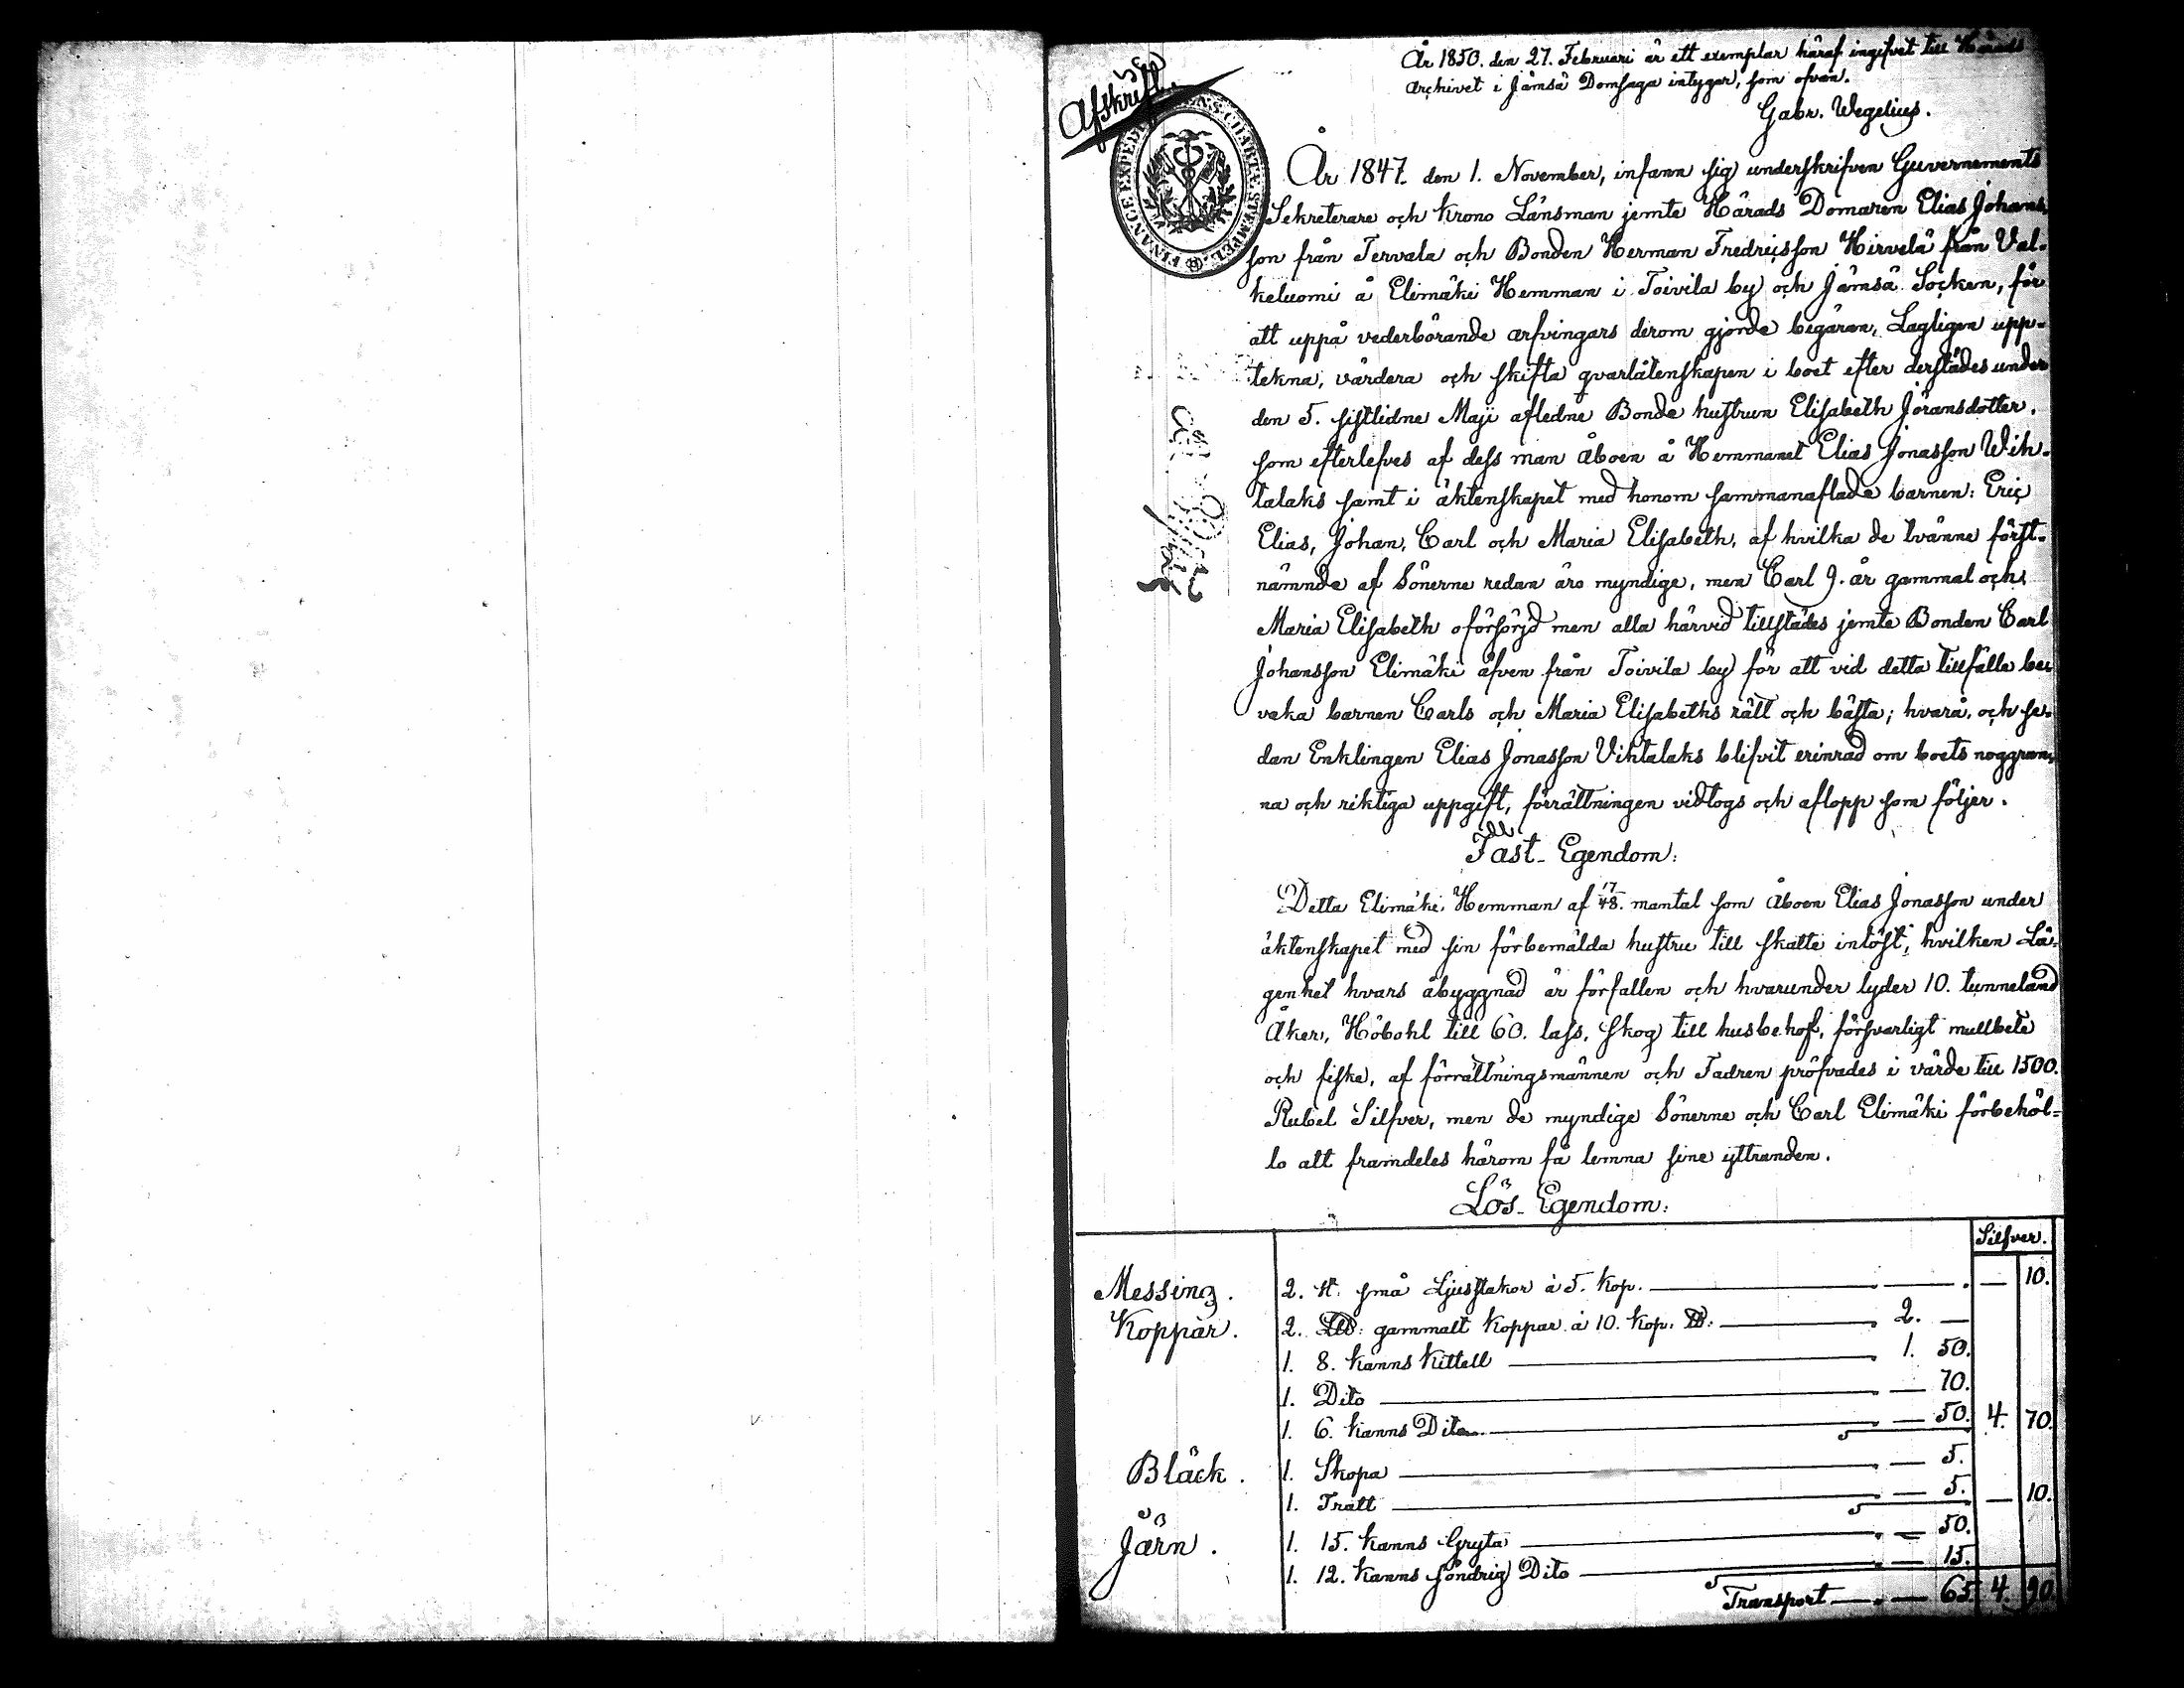 År 1850. den 27. Februari är ett exemplar häraf ingifvet till Härads
Archivet i Jämsä Domsaga intygar, som ofvan.
Gabr. Wegelius.
Afskrift.
FINANCE EXPEDITIONENS CHARTÆ STEMPEL
År 1847. den 1. November, infann sig underskrifven Guvernements
Sekreterare och Krono Länsman jemte Härads Domaren Elias Johans-
son från Tervala och Bonden Herman Fredricsson Hirvelä från Val-
keluomi å Elimäki Hemman i Toivila by och Jämsä Socken, för
att uppå vederbörande arfvingars derom gjorde begäran, Lagligen upp-
tekna, värdera och skifta qvarlåtenskapen i boet efter derstädes under
den 5. sistlidne Maji afledne Bonde hustrun Elisabeth Jöransdotter,
som efterlefves af dess man Åboen å Hemmanet Elias Jonasson Wih-
talaks samt i äktenskapet med honom sammanaflade barnen: Eric
Elias, Johan, Carl och Maria Elisabeth, af hvilka de tvänne först-
nämnde af Sönerne redan äro myndige, men Carl 9. år gammal och
Maria Elisabeth oförsörjd men alla härvid tillstädes jemte Bonden Carl
Johansson Elimäki äfven från Toivila by för att vid detta tillfälle be-
vaka barnen Carls och Maria Elisabeths rätt och bästa; hvarå, och se-
dan Enklingen Elias Jonasson Vihtalaks blifvit erinrad om boets noggran-
na och riktiga uppgift, förrättningen vidtogs och aflopp som följer.
Fast Egendom:
Detta Elimäki Hemman af 17/48. mantal som Åboen Elias Jonasson under
äktenskapet med sin förbemälda hustru till skatte inlöst, hvilken Lä-
genhet hvars åbyggnad är förfallen och hvarunder lyder 10. tunneland
Åker, Höbohl till 60. lass, Skog till husbehof, försvarligt mullbete
och fiske, af förrättningsmännen och Fadren pröfvades i värde till 1500.
Rubel Silfver, men de myndige Sönerne och Carl Elimäki förbehöl-
lo att framdeles härom få lemna sine yttranden.
Lös Egendom:
Silfver.
Messing. 2. st. små Ljusstakor à 5. Kop. — 10.
Koppar. 2. L℔: gammalt Koppar à 10. Kop. ℔: 2. —
1. 8. Kanns Kittell 1. 50.
1. Dito — 70.
1. 6. Kanns Dito — 50. 4. 70.
Bläck. 1. Skopa — 5.
1. Tratt — 5. — 10.
Järn. 1. 15. Kanns Gryta — 50.
1. 12. Kanns söndrig Dito — 15.
Transport — 65. 4. 90.